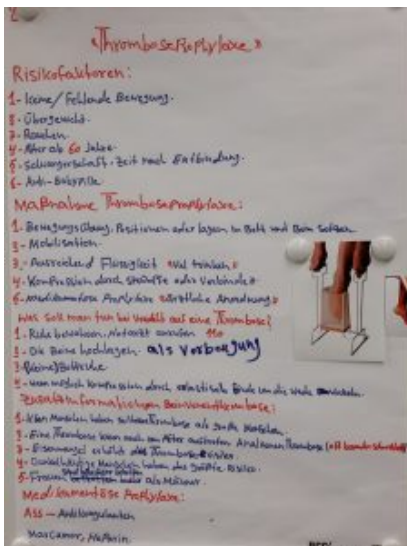 «ThromboseProphylaxe»
Risikofaktoren:
1- keine/ Fehlende Bewegung.
2- Übergewicht.
3- Rauchen.
4- Alter ab 60 Jahre.
5- Schwangerschaft. Zeit nach Entbindung.
6- Anti-Babypille.
Maßnahme Thromboseprophylaxe:
1. Bewegungsübung. Positionen oder lagern im Bett und beim Sitzen.
2- Mobilisation.
3.- Ausreichend Flüssigkeit «viel trinken»
4- Kompression durch
5- medikamentöse Prophylaxe «ärztliche Anordnung»
Was soll man tun bei Verdacht auf eine Thrombose?
1. Ruhe bewahren. Notarzt anrufen
2- Die Beine hochlagen. als Vorbeugung
3- Bettruhe
4- Wenn möglich Kompression durch elastische Binde um die Wade
Beinvenenthrombose:
1. Menschen haben Thrombose als große Menschen.
2- Eine Thrombose kann auch am After auftreten
3- erhöht das Thromboserisiko.
4- Dunkelhäutige Menschen haben das größte Risiko.
5- Frauen als Männer.
Medikamentöse Prophylaxe:
ASS - Antikoagulanten
Marcumar, Heparin